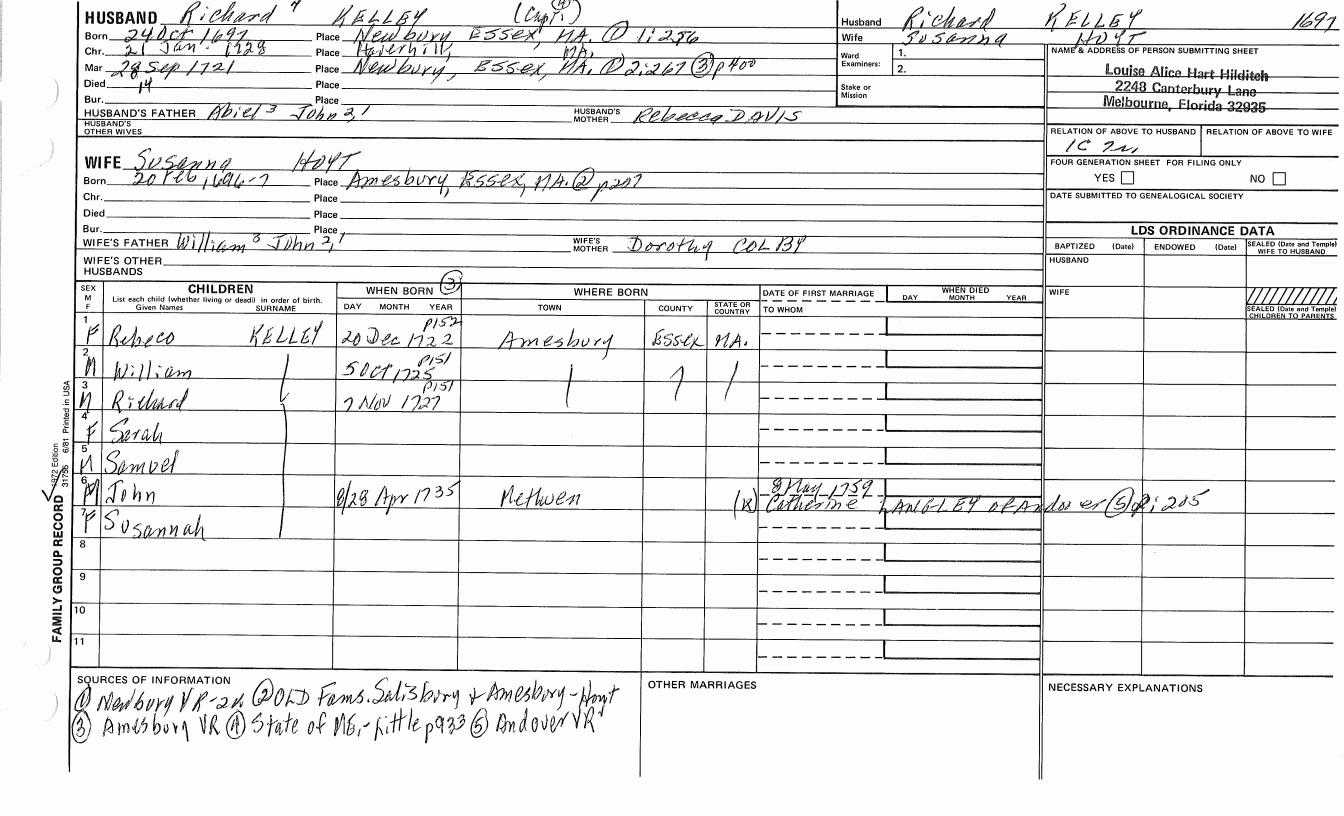 HUSBAND Richard 4 KELLEY (Capt.) ④
Born 24 Oct 1697 Place Newbury Essex, MA. ① 1:256
Chr. 21 Jan. 1728 Place Haverhill, MA.
Mar 28 Sep 1721 Place Newbury, Essex, MA. ① 2:267 ③ p400
Died 14 Place
Bur. Place
HUSBAND'S FATHER Abiel 3 John 2,1 HUSBAND'S MOTHER Rebecca DAVIS
HUSBAND'S OTHER WIVES
WIFE Susanna HOYT
Born 20 Feb, 1696-7 Place Amesbury, Essex, MA. ② p207
Chr. Place
Died Place
Bur. Place
WIFE'S FATHER William 3 John 2,1 WIFE'S MOTHER Dorothy COLBY
WIFE'S OTHER HUSBANDS
Husband Richard KELLEY 1697
Wife Susanna HOYT
Ward Examiners: 1.
2.
Stake or Mission
NAME & ADDRESS OF PERSON SUBMITTING SHEET
Louise Alice Hart Hilditch
2248 Canterbury Lane
Melbourne, Florida 32935
RELATION OF ABOVE TO HUSBAND RELATION OF ABOVE TO WIFE
1C
FOUR GENERATION SHEET FOR FILING ONLY
YES NO
DATE SUBMITTED TO GENEALOGICAL SOCIETY
LDS ORDINANCE DATA
BAPTIZED (Date) ENDOWED (Date) SEALED (Date and Temple) WIFE TO HUSBAND
HUSBAND
WIFE
SEALED (Date and Temple) CHILDREN TO PARENTS
SEX M F CHILDREN WHEN BORN ③ WHERE BORN DATE OF FIRST MARRIAGE WHEN DIED
List each child (whether living or dead) in order of birth.
Given Names SURNAME DAY MONTH YEAR TOWN COUNTY STATE OR COUNTRY TO WHOM DAY MONTH YEAR
1 F Rebeco KELLEY 20 Dec 1722 p152 Amesbury Essex MA.
2 M William 5 Oct 1725 p151
3 M Richard 7 Nov 1727 p151
4 F Sarah
5 M Samuel
6 M John 8/28 Apr 1735 Methuen 8 May 1759
(k) Catherine LANGLEY of Andover ⑤ 2:205
7 F Susannah
8
9
10
11
FAMILY GROUP RECORD
1972 Edition
31755 6/81 Printed in USA
SOURCES OF INFORMATION
① Newbury VR-2v. ② OLD Fams. Salisbury & Amesbury-Hoyt
③ Amesbury VR ④ State of ME,-Little p933 ⑤ Andover VR
OTHER MARRIAGES
NECESSARY EXPLANATIONS